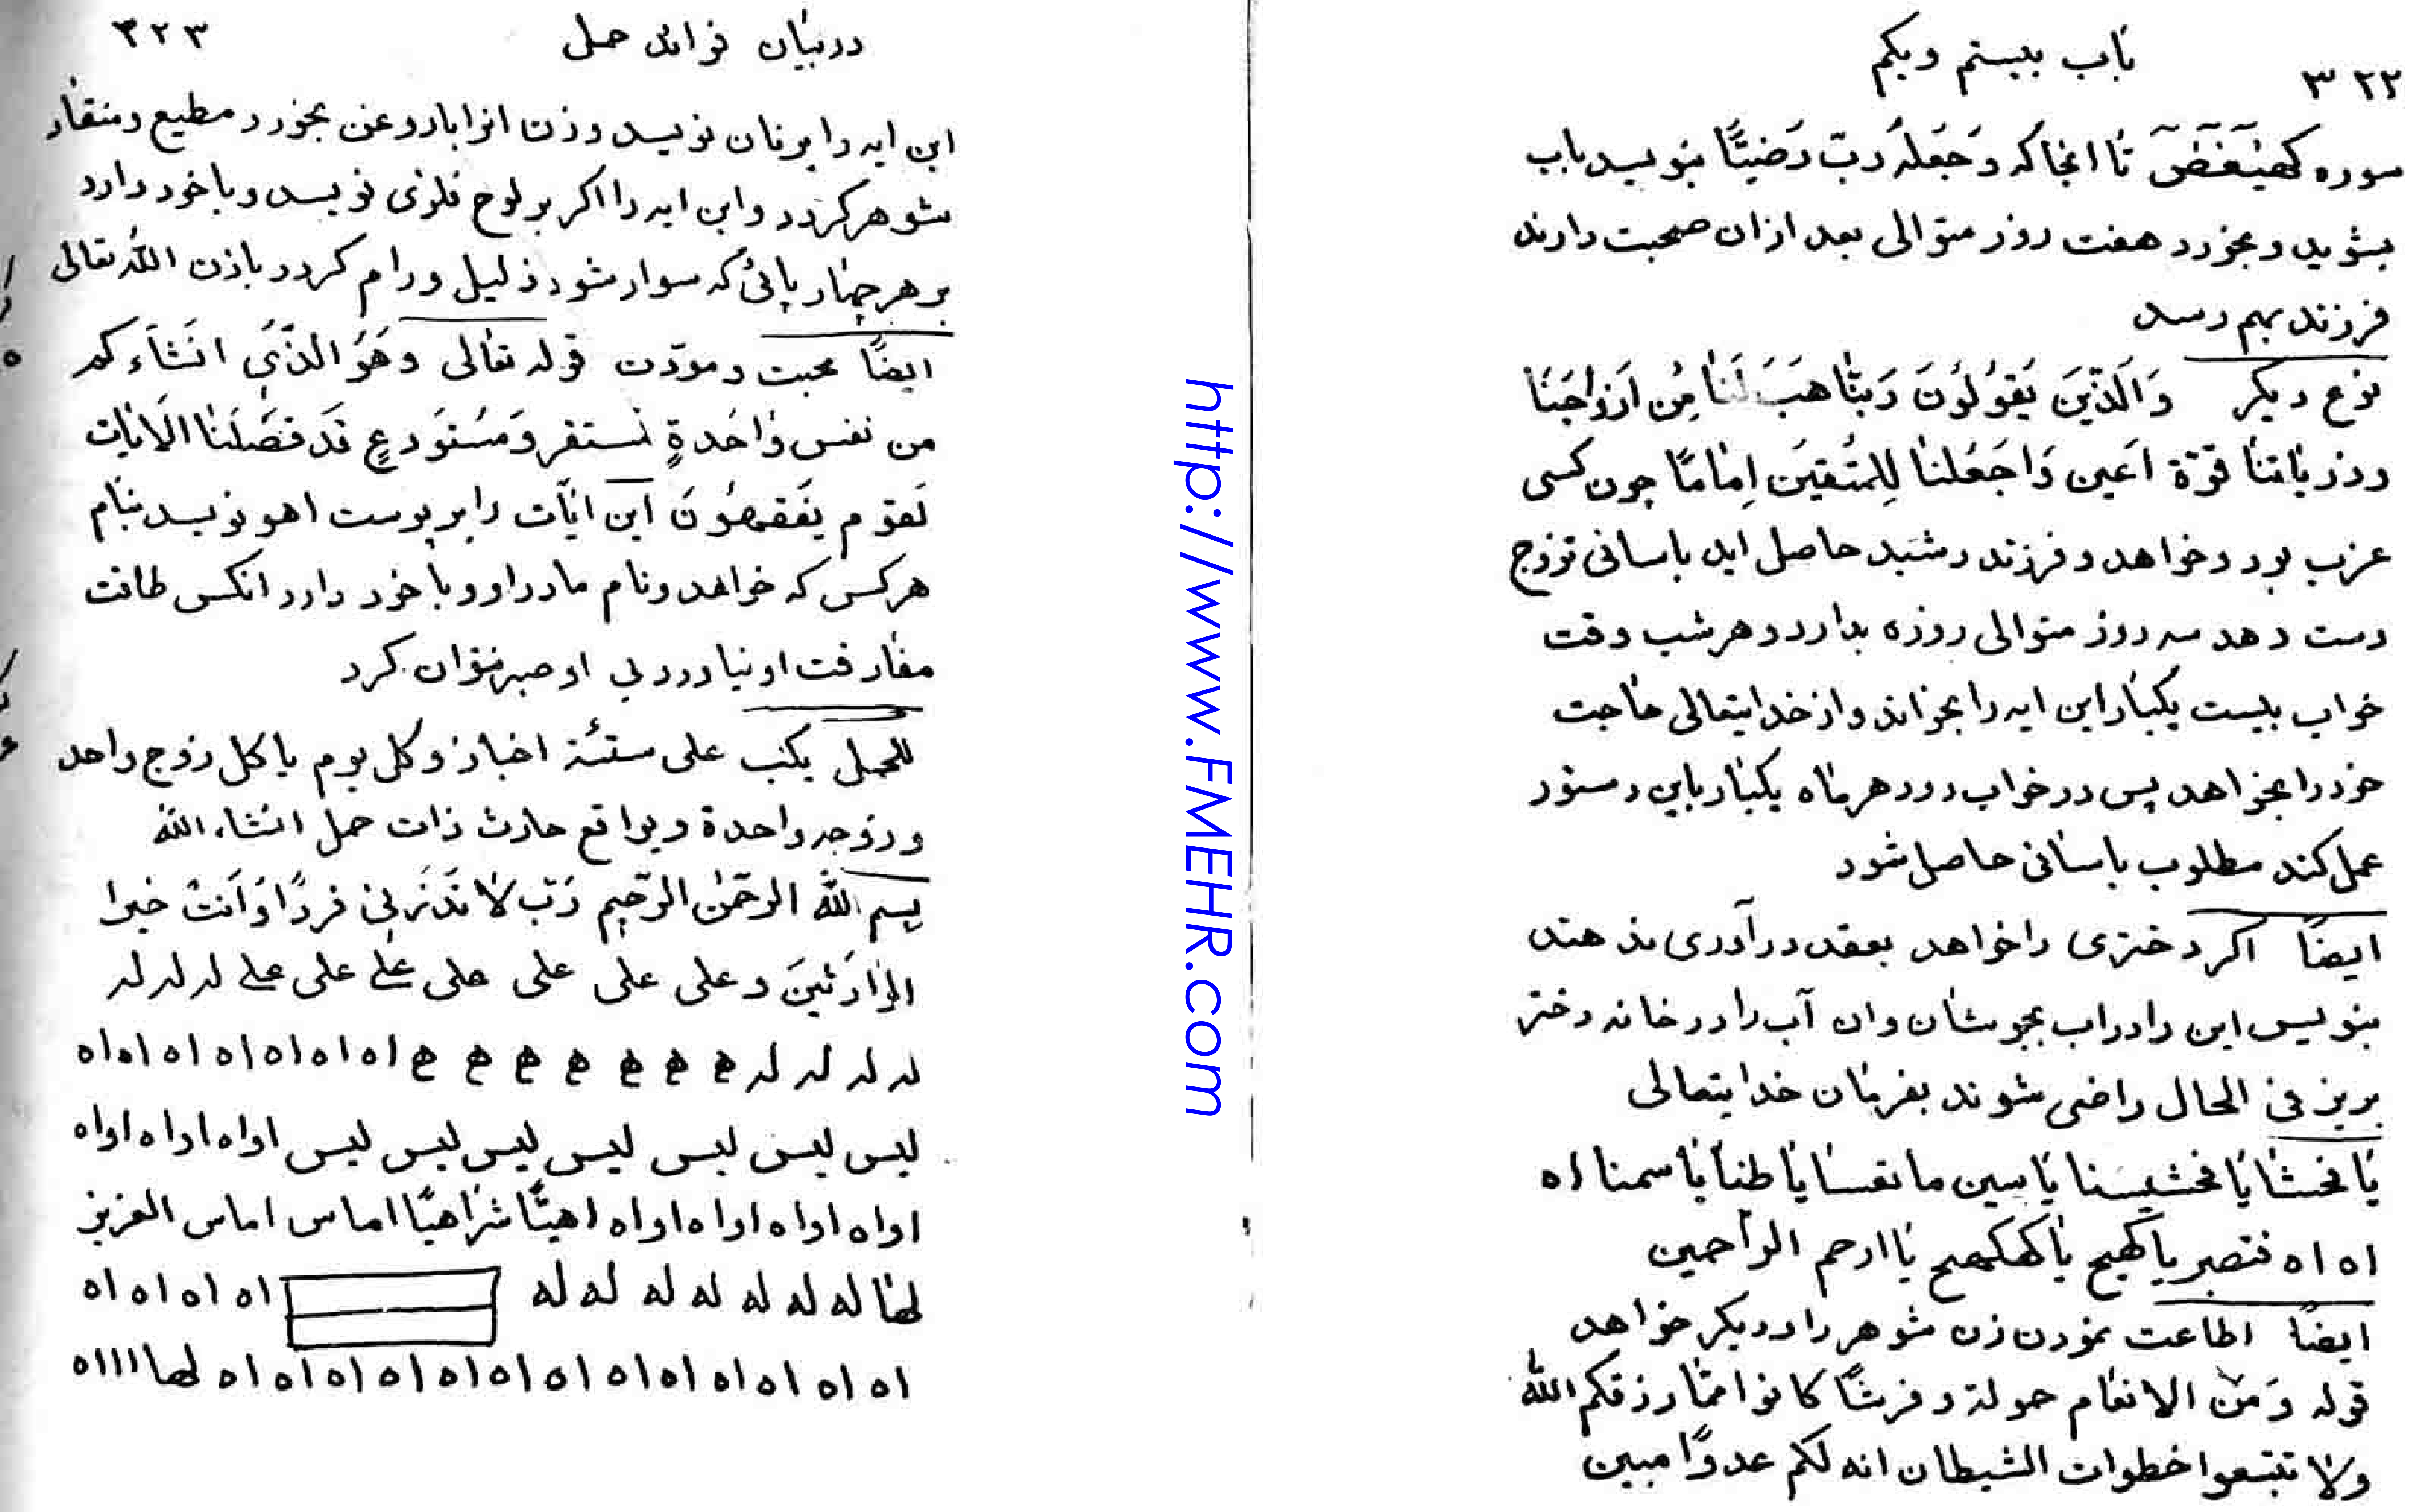 باب بیستم ویکم
٣٢٢
سوره کهیعص تا انجا که وَجَعَلَهُ رَبّ رَضِیًّا بنویسد باب
بشوید و بخورد هفت روز متوالی بعد ازان صحبت دارند
فرزند بهم رسد
نوع دیکر وَالَّذینَ یَقوُلوُنَ رَبَّنا هَب لَنا مِن اَزواجَنا
وذریاتنا قرّة اَعین وَاجَعَلنا لِلمتُقینَ اِمامًا چون کسی
عزب بود وخواهد و فرزند رشید حاصل اید باسانی تزوج
دست دهد سه روز متوالی روزه بدارد و هر شب وقت
خواب بیست یکبار این ایه را بخواند واز خدایتعالی حاجت
خود را بخواهد پس در خواب رود هر ماه یکبار باین دستور
عمل کند مطلوب باسانی حاصل شود
ایضًا اکر دختری را خواهد بعقد در آوری ندهند
بنویس این را در اب بجوشان وان آب را در خانه دختر
بریز فی الحال راضی شوند بفرمان خدایتعالی
یا فحشا یا فحشیسنا یا سین ما نقسا یا طنا یا سمنا اه
اه اه فتصبر یا کهیج یا کهکهیج یا ارحم الراحمین
ایضًا اطاعت نمودن زن شوهر را و دیکر خواهد
قوله وَمن الانعام حمولة وفرشًا کانوا ممّا رزقکم الله
ولا تتبعوا خطوات الشیطان انه لکم عدوًّا مبین
http://www.FMEHR.com
در بیان فوائد حمل
٣٢٣
این ایه را بر نان نویسد و زن انرا با روغن بخورد مطیع ومنقاد
شوهر کردد و این ایه را اکر بر لوح فلزی نویسد و با خود دارد
بر هر چهار پائی که سوار شود ذلیل ورام کردد باذن الله تعالی
ایضًا محبت ومودّت قوله تعالی وهَوُ الذّی انَشَاَءَ کم
من نفس واحَدةٍ فستقر وَمسُتوَدعٍ قَد فصَّلَنا الَایات
لَقوم یَفَقهوُنَ این ایات را بر پوست اهو نویسد بنام
هر کس که خواهد ونام مادر او و با خود دارد انکس طاقت
مفارقت او نیاورد بی او صبر نتوان کرد
للحمل یکتب علی ستئة اخباز وکل یوم یاکل زوج واحد
وزوجه واحدة ویواقع حارث ذات حمل انشاء الله
بسم الله الرحمن الرحیم رَبّ لا تَذَرنی فردًا وَاَنتَ خیرا
الوارثینَ وعلی علی علی علی علی علی علی له له له
له له له له ھ ھ ھ ھ ھ ھ ھ اه اه اه اه اه اه اه
لیس لیس لیس لیس لیس لیس لیس اواه اواه اواه
اواه اواه اواه اواه اهیًّا شراهیًّا اماس اماس العزیز
لها له له له له له له له اه اه اه اه
اه اه اه اه اه اه اه اه اه اه اه اه اه لها اااه